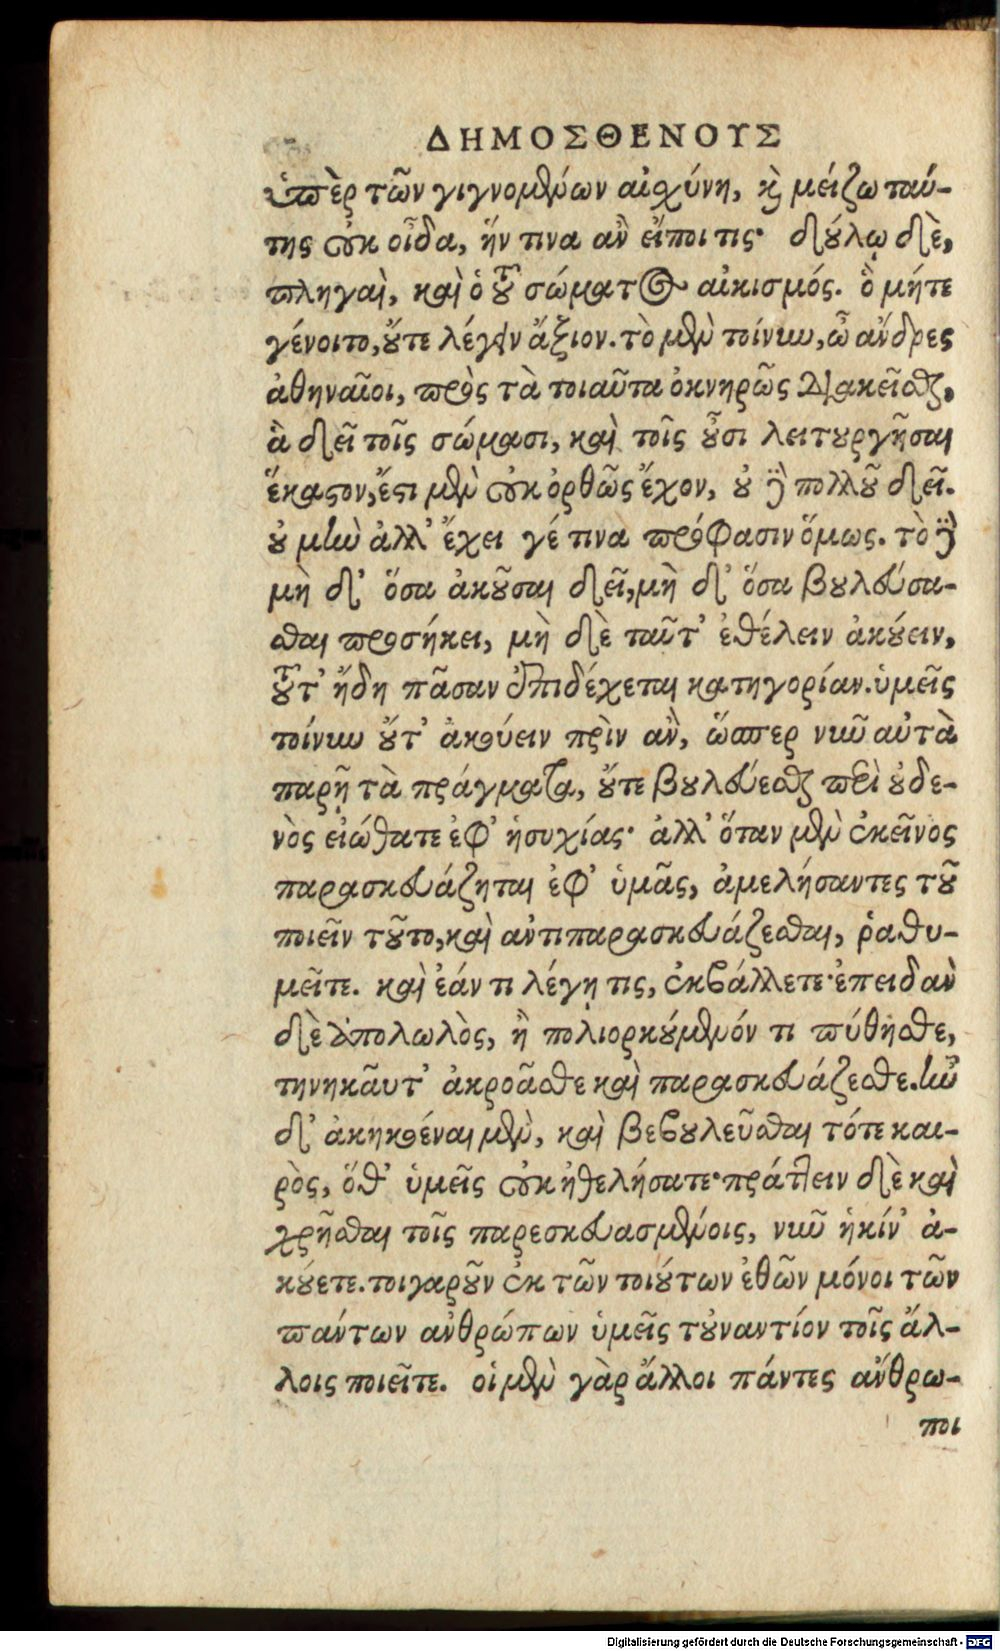 ΔΗΜΟΣΘΕΝΟΥΣ
ὑπὲρ τῶν γιγνομένων αἰσχύνη, καὶ μείζω ταύ-
της οὐκ οἶδα, ἥν τινα ἂν εἴποι τις· δούλῳ δὲ,
πληγαὶ, καὶ ὁ τοῦ σώματος αἰκισμός. ὃ μήτε
γένοιτο, οὔτε λέγειν ἄξιον. τὸ μὲν τοίνυν, ὦ ἄνδρες
ἀθηναῖοι, πρὸς τὰ τοιαῦτα ὀκνηρῶς διακεῖσθαι,
ἃ δεῖ τοῖς σώμασι, καὶ τοῖς οὖσι λειτουργῆσαι
ἕκαστον, ἔστι μὲν οὐκ ὀρθῶς ἔχον, οὐ γὰρ πολλοῦ δεῖ.
οὐ μὴν ἀλλ' ἔχει γέ τινα πρόφασιν ὅμως. τὸ γὰρ
μὴ δ' ὅσα ἀκοῦσαι δεῖ, μὴ δ' ὅσα βουλεύσα-
σθαι προσήκει, μὴ δὲ ταῦτ' ἐθέλειν ἀκούειν,
τοῦτ' ἤδη πᾶσαν ἐπιδέχεται κατηγορίαν. ὑμεῖς
τοίνυν οὔτ' ἀκούειν πρὶν ἂν, ὥσπερ νῦν αὐτὰ
παρῇ τὰ πράγματα, οὔτε βουλεύεσθαι περὶ οὐδε-
νὸς εἰώθατε ἐφ' ἡσυχίας· ἀλλ' ὅταν μὲν ἐκεῖνος
παρασκευάζηται ἐφ' ὑμᾶς, ἀμελήσαντες τοῦ
ποιεῖν τοῦτο, καὶ ἀντιπαρασκευάζεσθαι, ῥαθυ-
μεῖτε. καὶ ἐάν τι λέγῃ τις, ἐκβάλλετε· ἐπειδὰν
δὲ ἀπολωλὸς, ἢ πολιορκούμενόν τι πύθησθε,
τηνηκαῦτ' ἀκροᾶσθε καὶ παρασκευάζεσθε. ἦν
δ' ἀκηκοέναι μὲν, καὶ βεβουλεῦσθαι τότε και-
ρὸς, ὅθ' ὑμεῖς οὐκ ἠθελήσατε· πράττειν δὲ καὶ
χρῆσθαι τοῖς παρεσκευασμένοις, νῦν ἡκίν' ἀ-
κούετε. τοιγαροῦν ἐκ τῶν τοιούτων ἐθῶν μόνοι τῶν
πάντων ἀνθρώπων ὑμεῖς τοὐναντίον τοῖς ἄλ-
λοις ποιεῖτε. οἱ μὲν γὰρ ἄλλοι πάντες ἄνθρω-
ποι
Digitalisierung gefördert durch die Deutsche Forschungsgemeinschaft - DFG